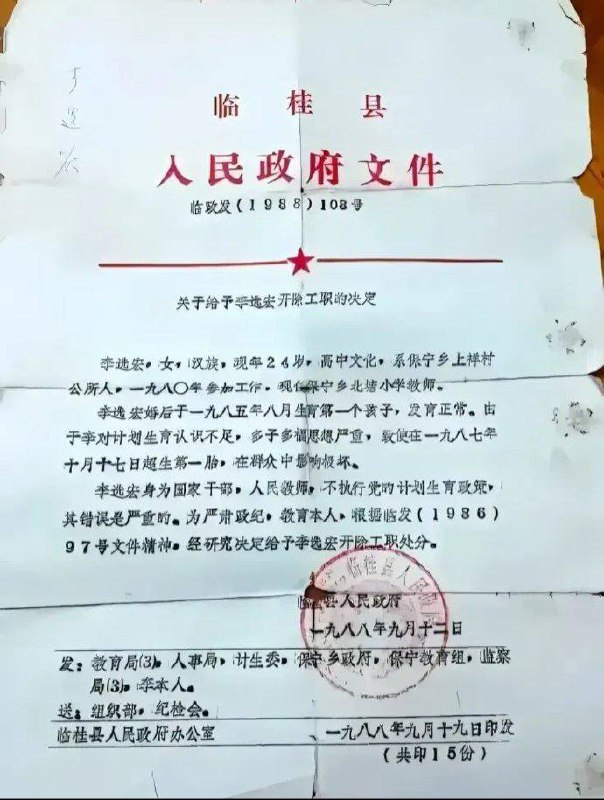 临桂县
人民政府文件
临政发(1988)108号
关于给予李选宏开除工职的决定
李选宏，女，汉族，现年24岁，高中文化，系保宁乡上祥村
公所人，一九八〇年参加工作，现任保宁乡北塘小学教师。
李选宏婚后于一九八五年八月生育第一个孩子，发育正常。由
于李对计划生育认识不足，多子多福思想严重，致使在一九八七年
十月十七日超生第一胎，在群众中影响极坏。
李选宏身为国家干部，人民教师，不执行党的计划生育政策，
其错误是严重的。为严肃政纪，教育本人，根据临发(1986)
97号文件精神，经研究决定给予李选宏开除工职处分。
临桂县人民政府
一九八八年九月十二日
发：教育局(3)，人事局，计生委，保宁乡政府，保宁教育组，监察
局(3)，李本人。
送：组织部，纪检会。
临桂县人民政府办公室 一九八八年九月十九日印发
(共印15份)